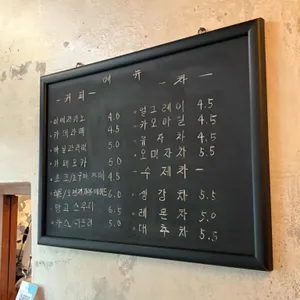 메 뉴
- 커 피 -
아메리카노 4.0
카페라떼 4.5
바닐라라떼 5.0
카페모카 5.0
4.5
5.0
망고 스무디 6.5
5.0
차 -
얼그레이 4.5
카모마일 4.5
유자차 4.5
오미자차 5.5
- 수제차 -
생강차 5.5
레몬차 5.0
대추차 5.5